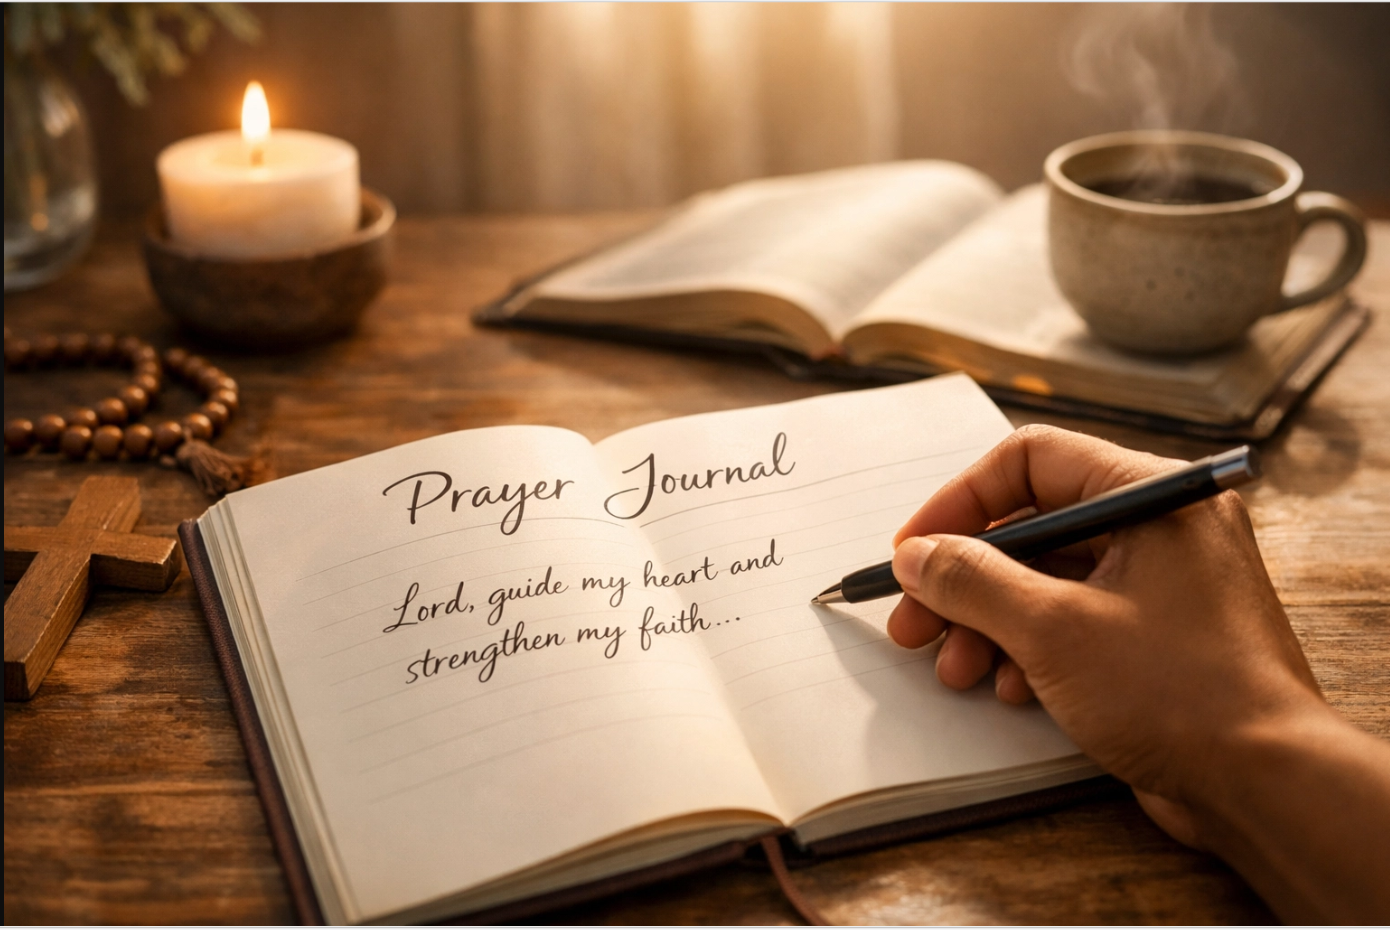 Prayer Journal
Lord, guide my heart and
strengthen my faith...